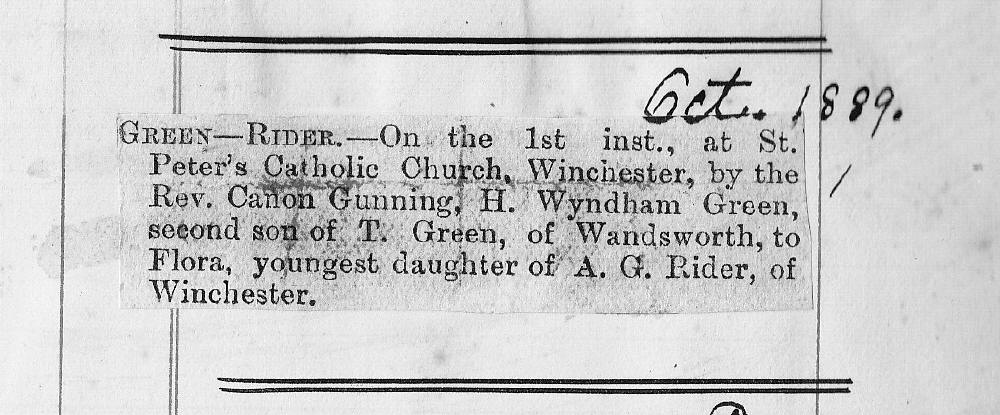 Oct. 1889.
GREEN—RIDER.—On the 1st inst., at St.
Peter's Catholic Church, Winchester, by the
Rev. Canon Gunning, H. Wyndham Green,
second son of T. Green, of Wandsworth, to
Flora, youngest daughter of A. G. Rider, of
Winchester.